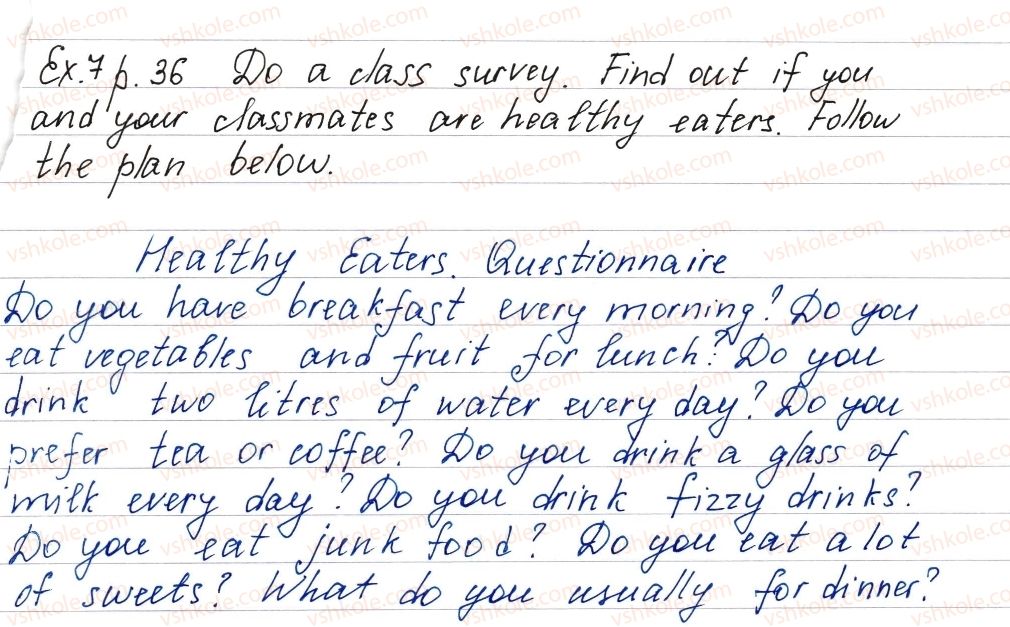 Ex.7 p. 36 Do a class survey. Find out if you
and your classmates are healthy eaters. Follow
the plan below.
Healthy Eaters. Questionnaire
Do you have breakfast every morning? Do you
eat vegetables and fruit for lunch? Do you
drink two litres of water every day? Do you
prefer tea or coffee? Do you drink a glass of
milk every day? Do you drink fizzy drinks?
Do you eat junk food? Do you eat a lot
of sweets? What do you usually for dinner?